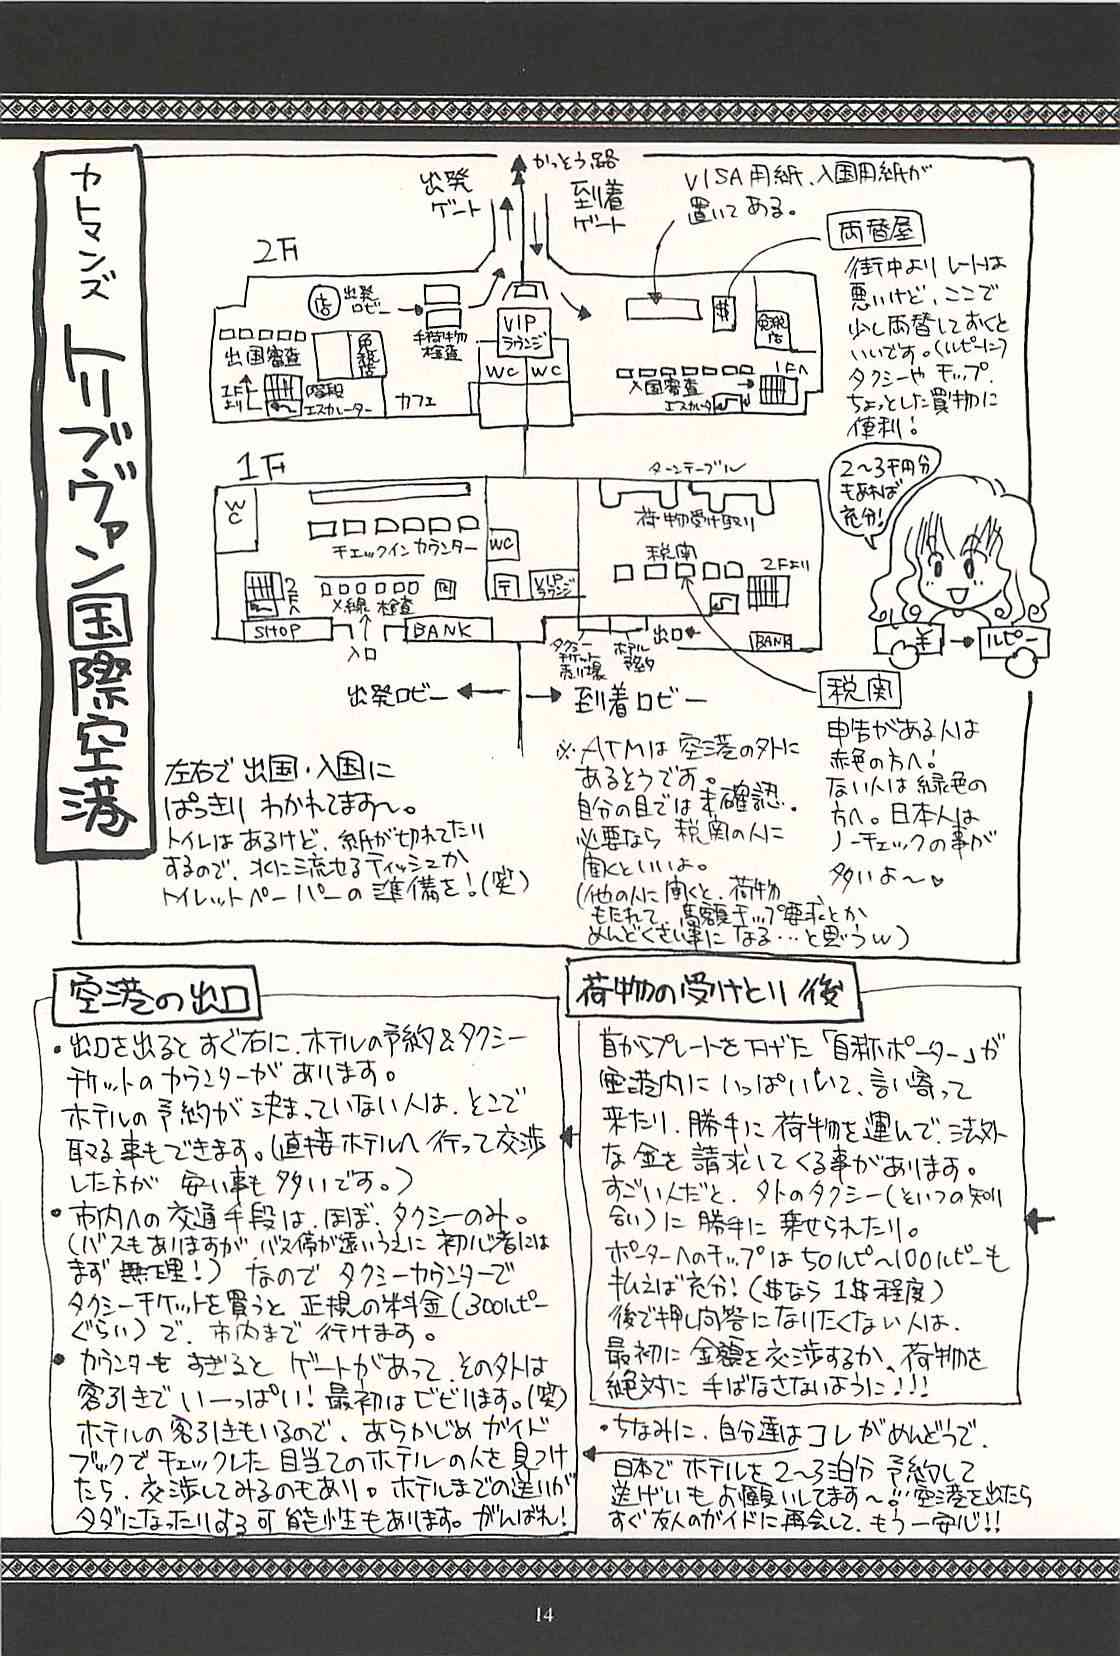 カトマンズ トリブヴァン国際空港
かっとう路
出発
ゲート
到着
ゲート
VISA用紙、入国用紙が
置いてある。
両替屋
街中よりレートは
悪いけど、ここで
少し両替しておくと
いいです。(ルピーに)
タクシーやチップ、
ちょっとした買物に
便利!
2〜3千円分
もあれば
充分!
¥
ルピー
2F
店
出発
ロビー
手荷物
検査
VIP
ラウンジ
WC
WC
出国審査
免税店
1F
より
階段
エスカレーター
カフェ
$
免税
店
入国審査
エスカレータ
1Fへ
1F
WC
チェックインカウンター
2Fへ
X線検査
SHOP
入口
BANK
WC
〒
VIP
ラウンジ
ターンテーブル
荷物受け取り
税関
2Fより
タクシー
チケット
売り場
ホテル
予約
出口
BANK
出発ロビー
到着ロビー
税関
申告がある人は
赤色の方へ!
ない人は緑色の
方へ。日本人は
ノーチェックの事が
多いよ〜♥
左右で出国・入国に
ぱっきりわかれてます〜。
トイレはあるけど、紙が切れてたり
するので、水に流せるティッシュか
トイレットペーパーの準備を!(笑)
※ATMは空港の外に
あるそうです。
自分の目では未確認。
必要なら税関の人に
聞くといいよ。
(他の人に聞くと、荷物
もたれて、高額チップ要求とか
めんどくさい事になる…と思うw)
空港の出口
・出口を出るとすぐ右に、ホテルの予約&タクシー
チケットのカウンターがあります。
ホテルの予約が決まっていない人は、とこで
取る事もできます。(直接ホテルへ行って交渉
した方が安い事も多いです。)
・市内への交通手段は、ほぼ、タクシーのみ。
(バスもありますがバス停が遠いうえに初心者には
まず無理!)なのでタクシーカウンターで
タクシーチケットを買うと正規の料金(300ルピー
ぐらい)で、市内まで行けます。
・カウンターもすぎるとゲートがあって、その外は
客引きでいーっぱい!最初はビビります。(笑)
ホテルの客引きもいるので、あらかじめガイド
ブックでチェックした目当てのホテルの人を見つけ
たら、交渉してみるのもあり。ホテルまでの送りが
タダになったりする可能性もあります。がんばれ!
荷物の受けとり後
首からプレートを下げた「自称ポーター」が
空港内にいっぱいいて、言い寄って
来たり、勝手に荷物を運んで、法外
な金を請求してくる事があります。
すごい人だと、外のタクシー(といつの知り
合い)に勝手に乗せられたり。
ポーターへのチップは50ルピ〜100ルピーも
払えば充分!($なら1$程度)
後で押し問答になりたくない人は、
最初に金額を交渉するか、荷物を
絶対に手ばなさないように!!!
・ちなみに、自分達はコレがめんどうで、
日本でホテルを2〜3泊分予約して
送げいもお願いしてます〜!空港を出たら
すぐ友人のガイドに再会して、もう一安心!!
14